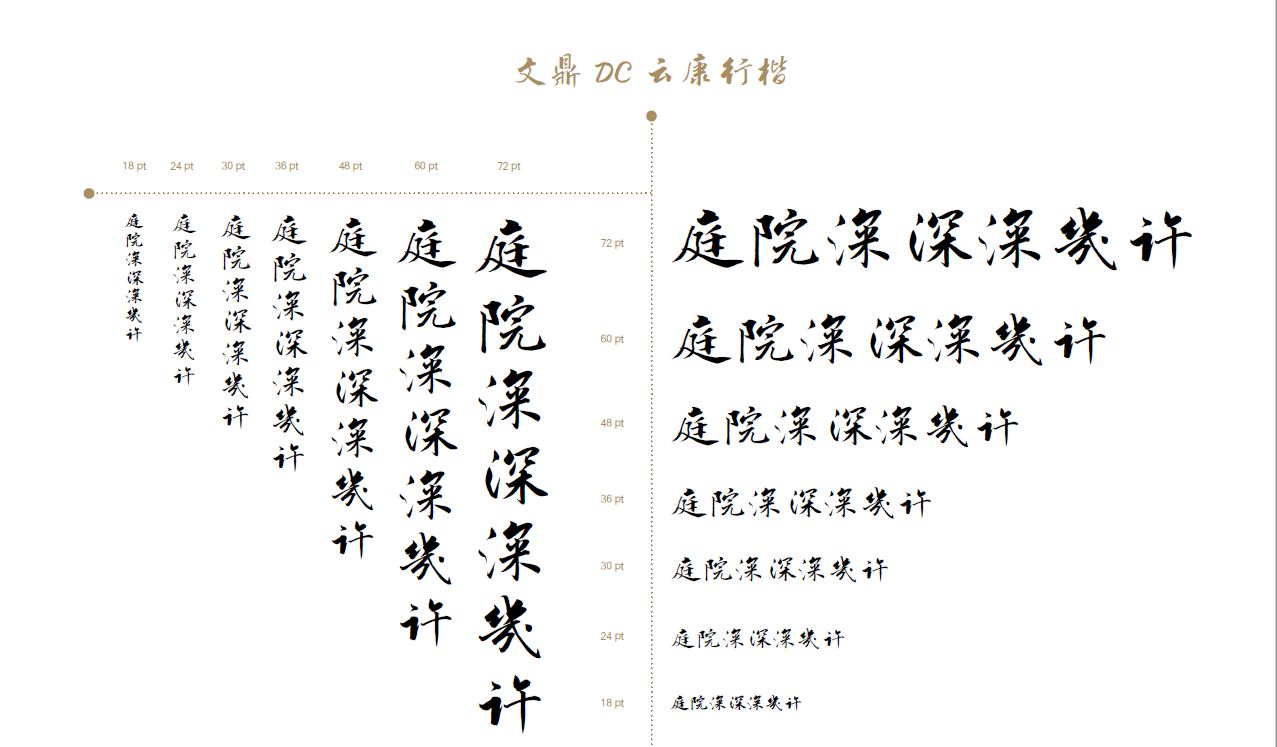 文鼎 DC 云康行楷
18 pt 24 pt 30 pt 36 pt 48 pt 60 pt 72 pt
庭院深深深几许
庭院深深深几许
庭院深深深几许
庭院深深深几许
庭院深深深几许
庭院深深深几许
庭院深深深几许
72 pt 庭院深深深幾许
60 pt 庭院深深深幾许
48 pt 庭院深深深幾许
36 pt 庭院深深深幾许
30 pt 庭院深深深幾许
24 pt 庭院深深深幾许
18 pt 庭院深深深幾许